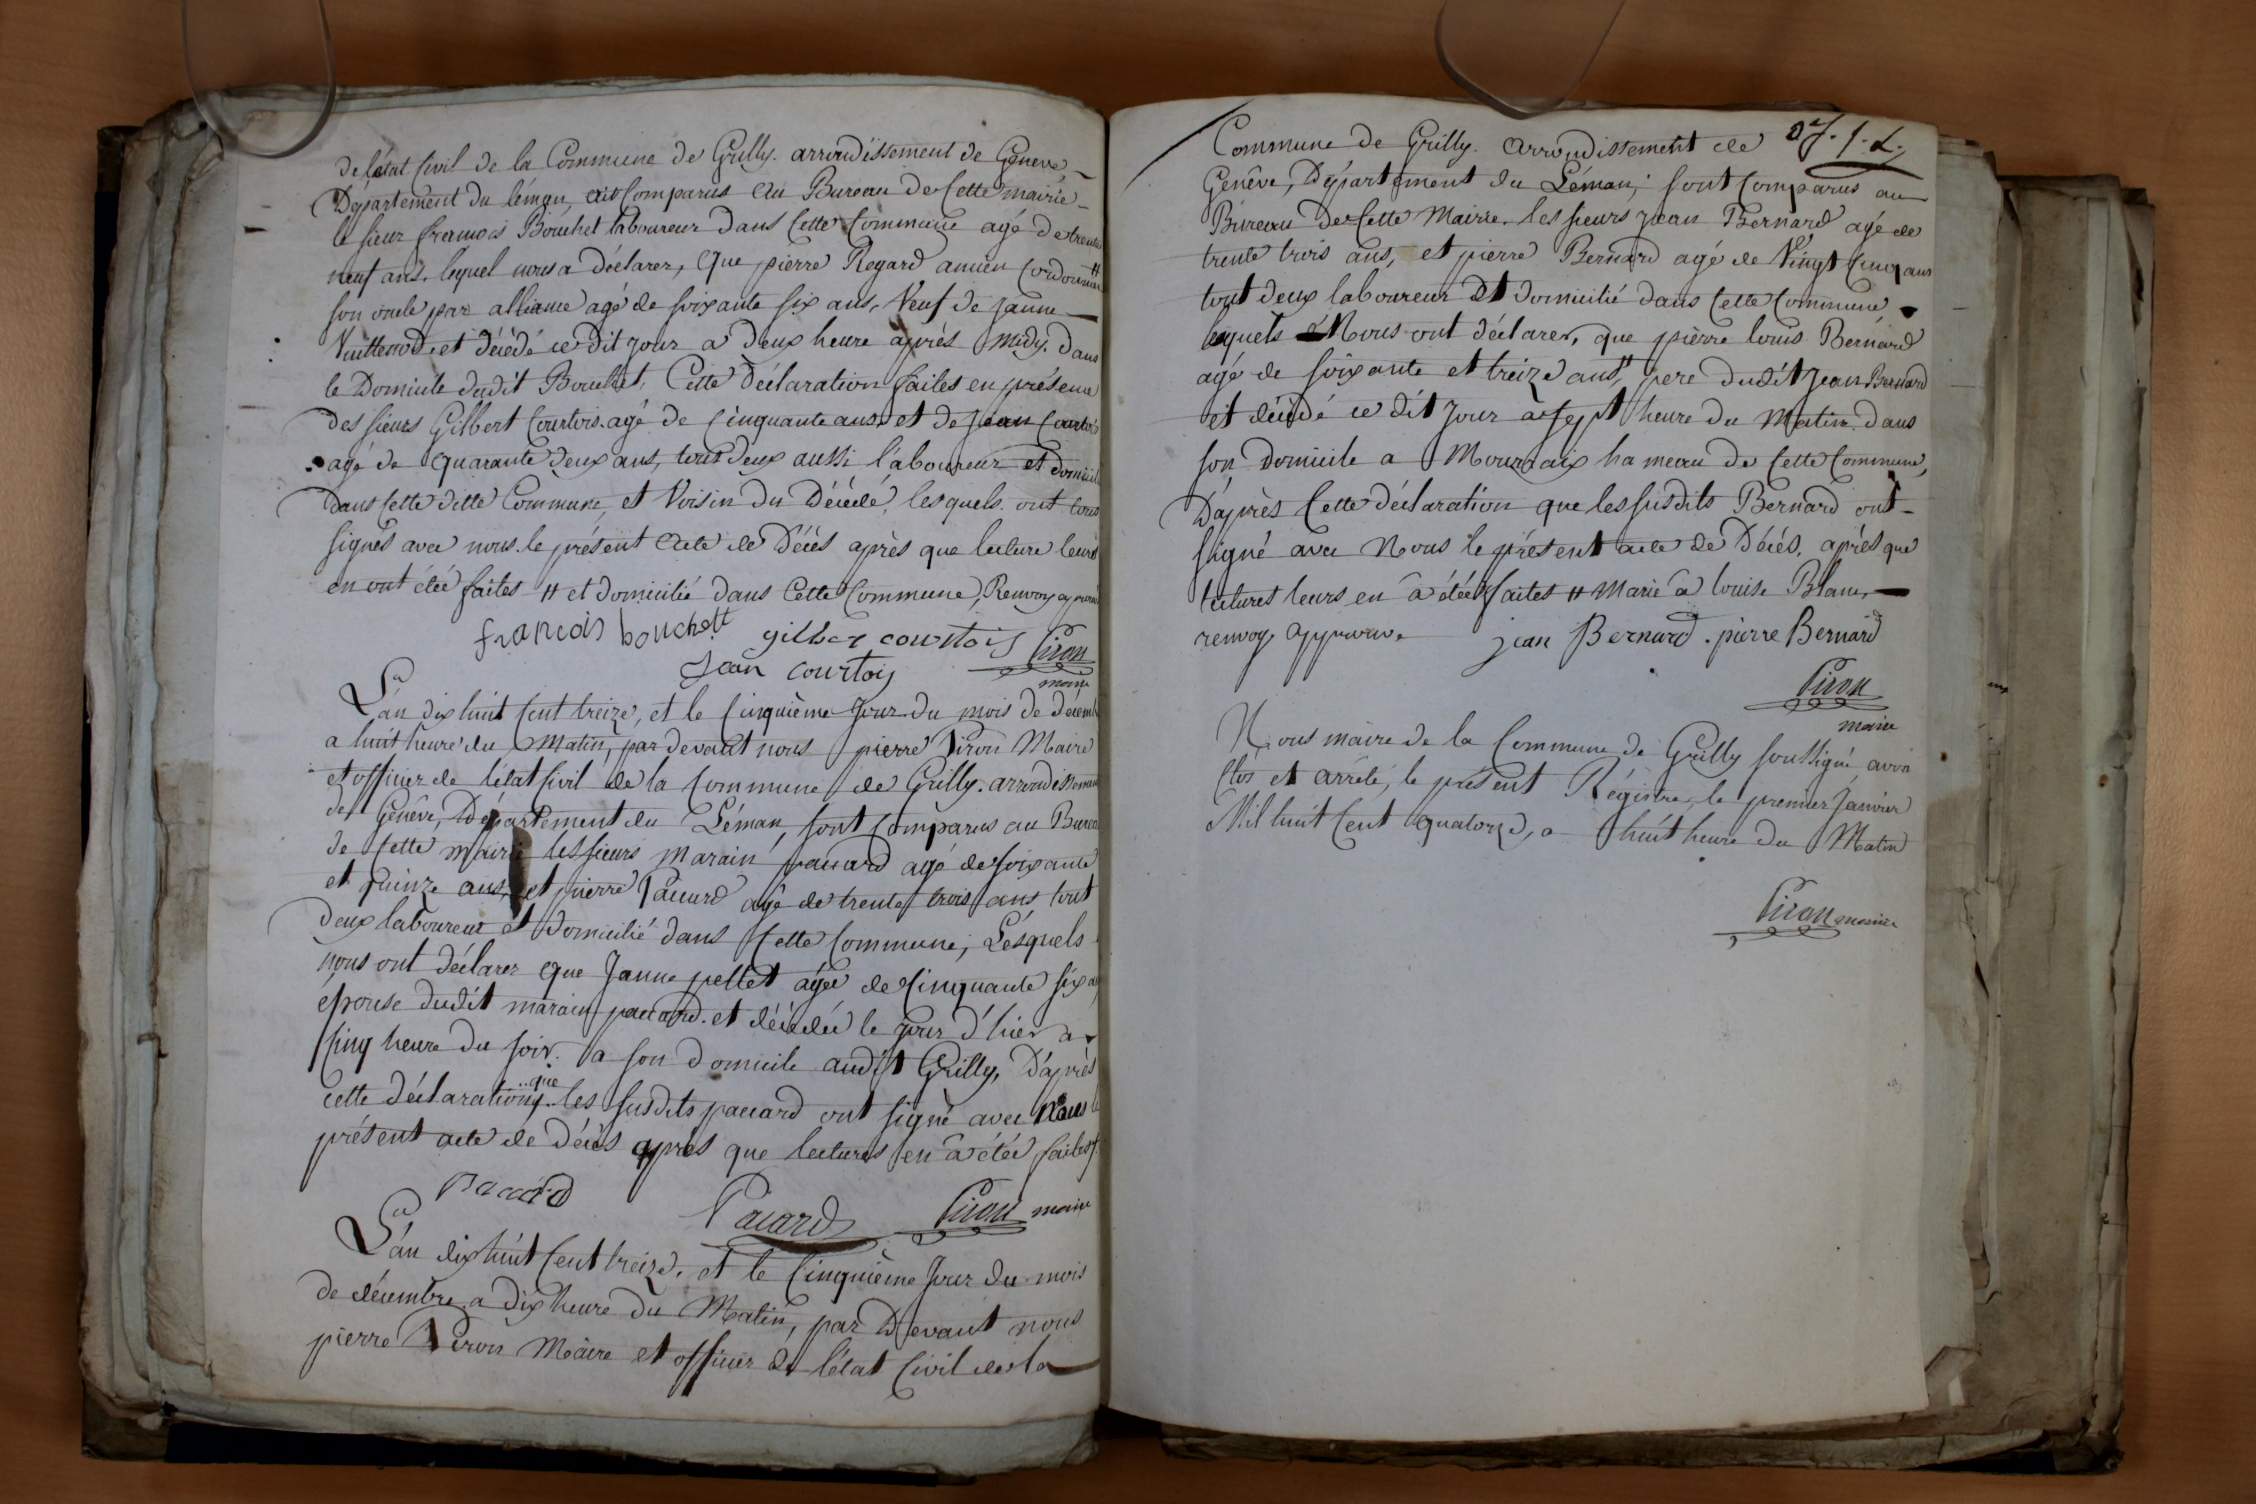 de létat Civil de la Commune de Grilly. arrondissement de Genêve,
Département du léman, est Comparus au Bureau de Cette mairie
le sieur francois Bouchet laboureur dans Cette Commune agé de trente
neuf ans. lequel nous a déclarer, que pierre Regard ancien Cordonnier #
son oncle par alliance agé de soixante six ans, Veuf de janne
et décédé ce dit jour a deux heure après Midy. dans
le Domicile dudit Bouchet, Cette déclaration faites en présence
des sieurs Gilbert Courtois agé de Cinquante ans, et de Jean Courtois
agé de quarante deux ans, tout deux aussi laboureur et domicil
dans Cette ditte Commune, et Voisin du Décédé, lesquels ont tous
signés avec nous le présent acte de Décès après que lecture leurs
en ont étée faites # et domicilié dans Cette Commune, Renvoy approuv
francois bouchett gilber courtois Piron
Jean courtois maire
L'an dix huit Cent treize, et le Cinquième Jour du mois de décemb
a huit heure du Matin, par devant nous pierre Piron Maire
et officier de létat Civil de la Commune de Grilly. arrondissement
de Genêve, Département du Léman, sont Comparus au Bureau
de Cette mairie les sieurs marain paccard agé de soixante
et quinze ans, et pierre Paccard agé de trente trois ans tout
deux laboureur et domicilié dans Cette Commune, Lesquels
nous ont déclarer que Janne pellet agée de Cinquante six a
épouse dudit marain paccard. et décédée le jour d'hier a
Cinq heure du soir. a son domicile audit Grilly, D'après
cette déclaration que les susdits paccard ont signé avec Nous le
présent acte de Décès après que lectures en a étée faites.
Paccard Pacard Piron maire
L'an dix huit Cent treize, et le Cinquième Jour du mois
de décembre a dix heure du Matin, par Devant nous
pierre Piron Maire et officier de létat Civil de la
Commune de Grilly. arrondissement de
Genêve, Département du Léman, sont Comparus au
Bureau de Cette Mairie. les sieurs jean Bernard agé de
trente trois ans, et pierre Bernard agé de Vingt Cinq ans
tout deux laboureur et domicilié dans Cette Commune
lesquels Nous ont déclarer, que pierre louis Bernard
agé de soixante et treize ans, # pere dudit Jean Bernard
et décédé ce dit Jour à sept heure du Matin. dans
son Domicile a Mourraix hameau de Cette Commune,
D'après Cette déclaration que les susdits Bernard ont
signé avec Nous le présent acte de Décés, après que
lectures leurs en a étée faites # Marié a louise Blanc,
renvoy approuvé. jean Bernard . pierre Bernard
Piron
maire
Nous maire de la Commune de Grilly soussigné avon
Clos et arrêté, le présent Régistre, le premier Janvier
Mil huit Cent quatorze, a huit heure du Matin
Piron maire